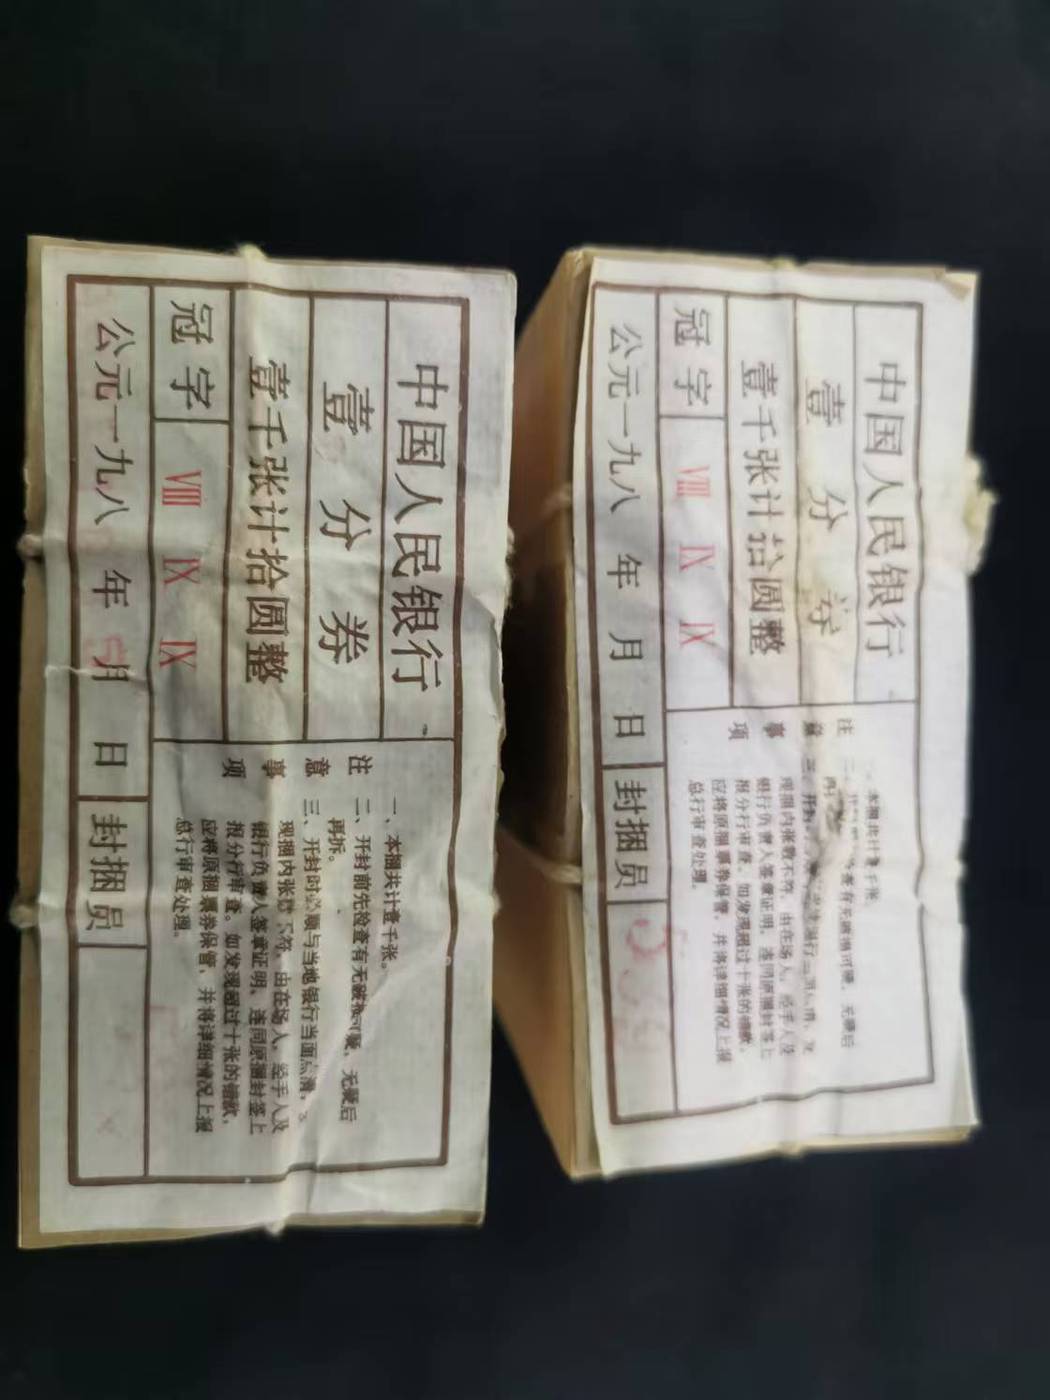 中国人民银行
壹分券
壹千张计拾圆整
冠字 VIII IX IX
公元一九八 年 月 日
封捆员
注意事项
一、本捆共计壹千张。
二、开封前先检查有无破损可疑，无疑后
再拆。
三、开封时必须与当地银行当面点清，发
现捆内张数不符，由在场人、经手人及
银行负责人签章证明，连同原捆封签上
报分行审查。如发现超过十张的错款，
应将原捆票券保管，并将详细情况上报
总行审查处理。
中国人民银行
壹分券
壹千张计拾圆整
冠字 VIII IX IX
公元一九八 年 月 日
封捆员
注意事项
一、本捆共计壹千张。
查有无破损可疑，无疑后
再
三、开封
现捆内张数不符，由在场人、经手人及
银行负责人签章证明，连同原捆封签上
报分行审查。如发现超过十张的错款，
应将原捆票券保管，并将详细情况上报
总行审查处理。